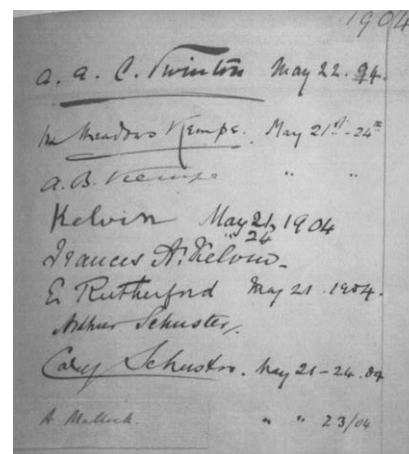 1904
A. A. C. Swinton May 22. 94.
Meadows Kempe. May 21st - 24th
A. B. Kempe " "
Kelvin May 21, 1904
" 24
Frances A. Kelvin
E Rutherford May 21. 1904.
Arthur Schuster
Schuster. May 21-24. 04
A Mallock. " " 23/04